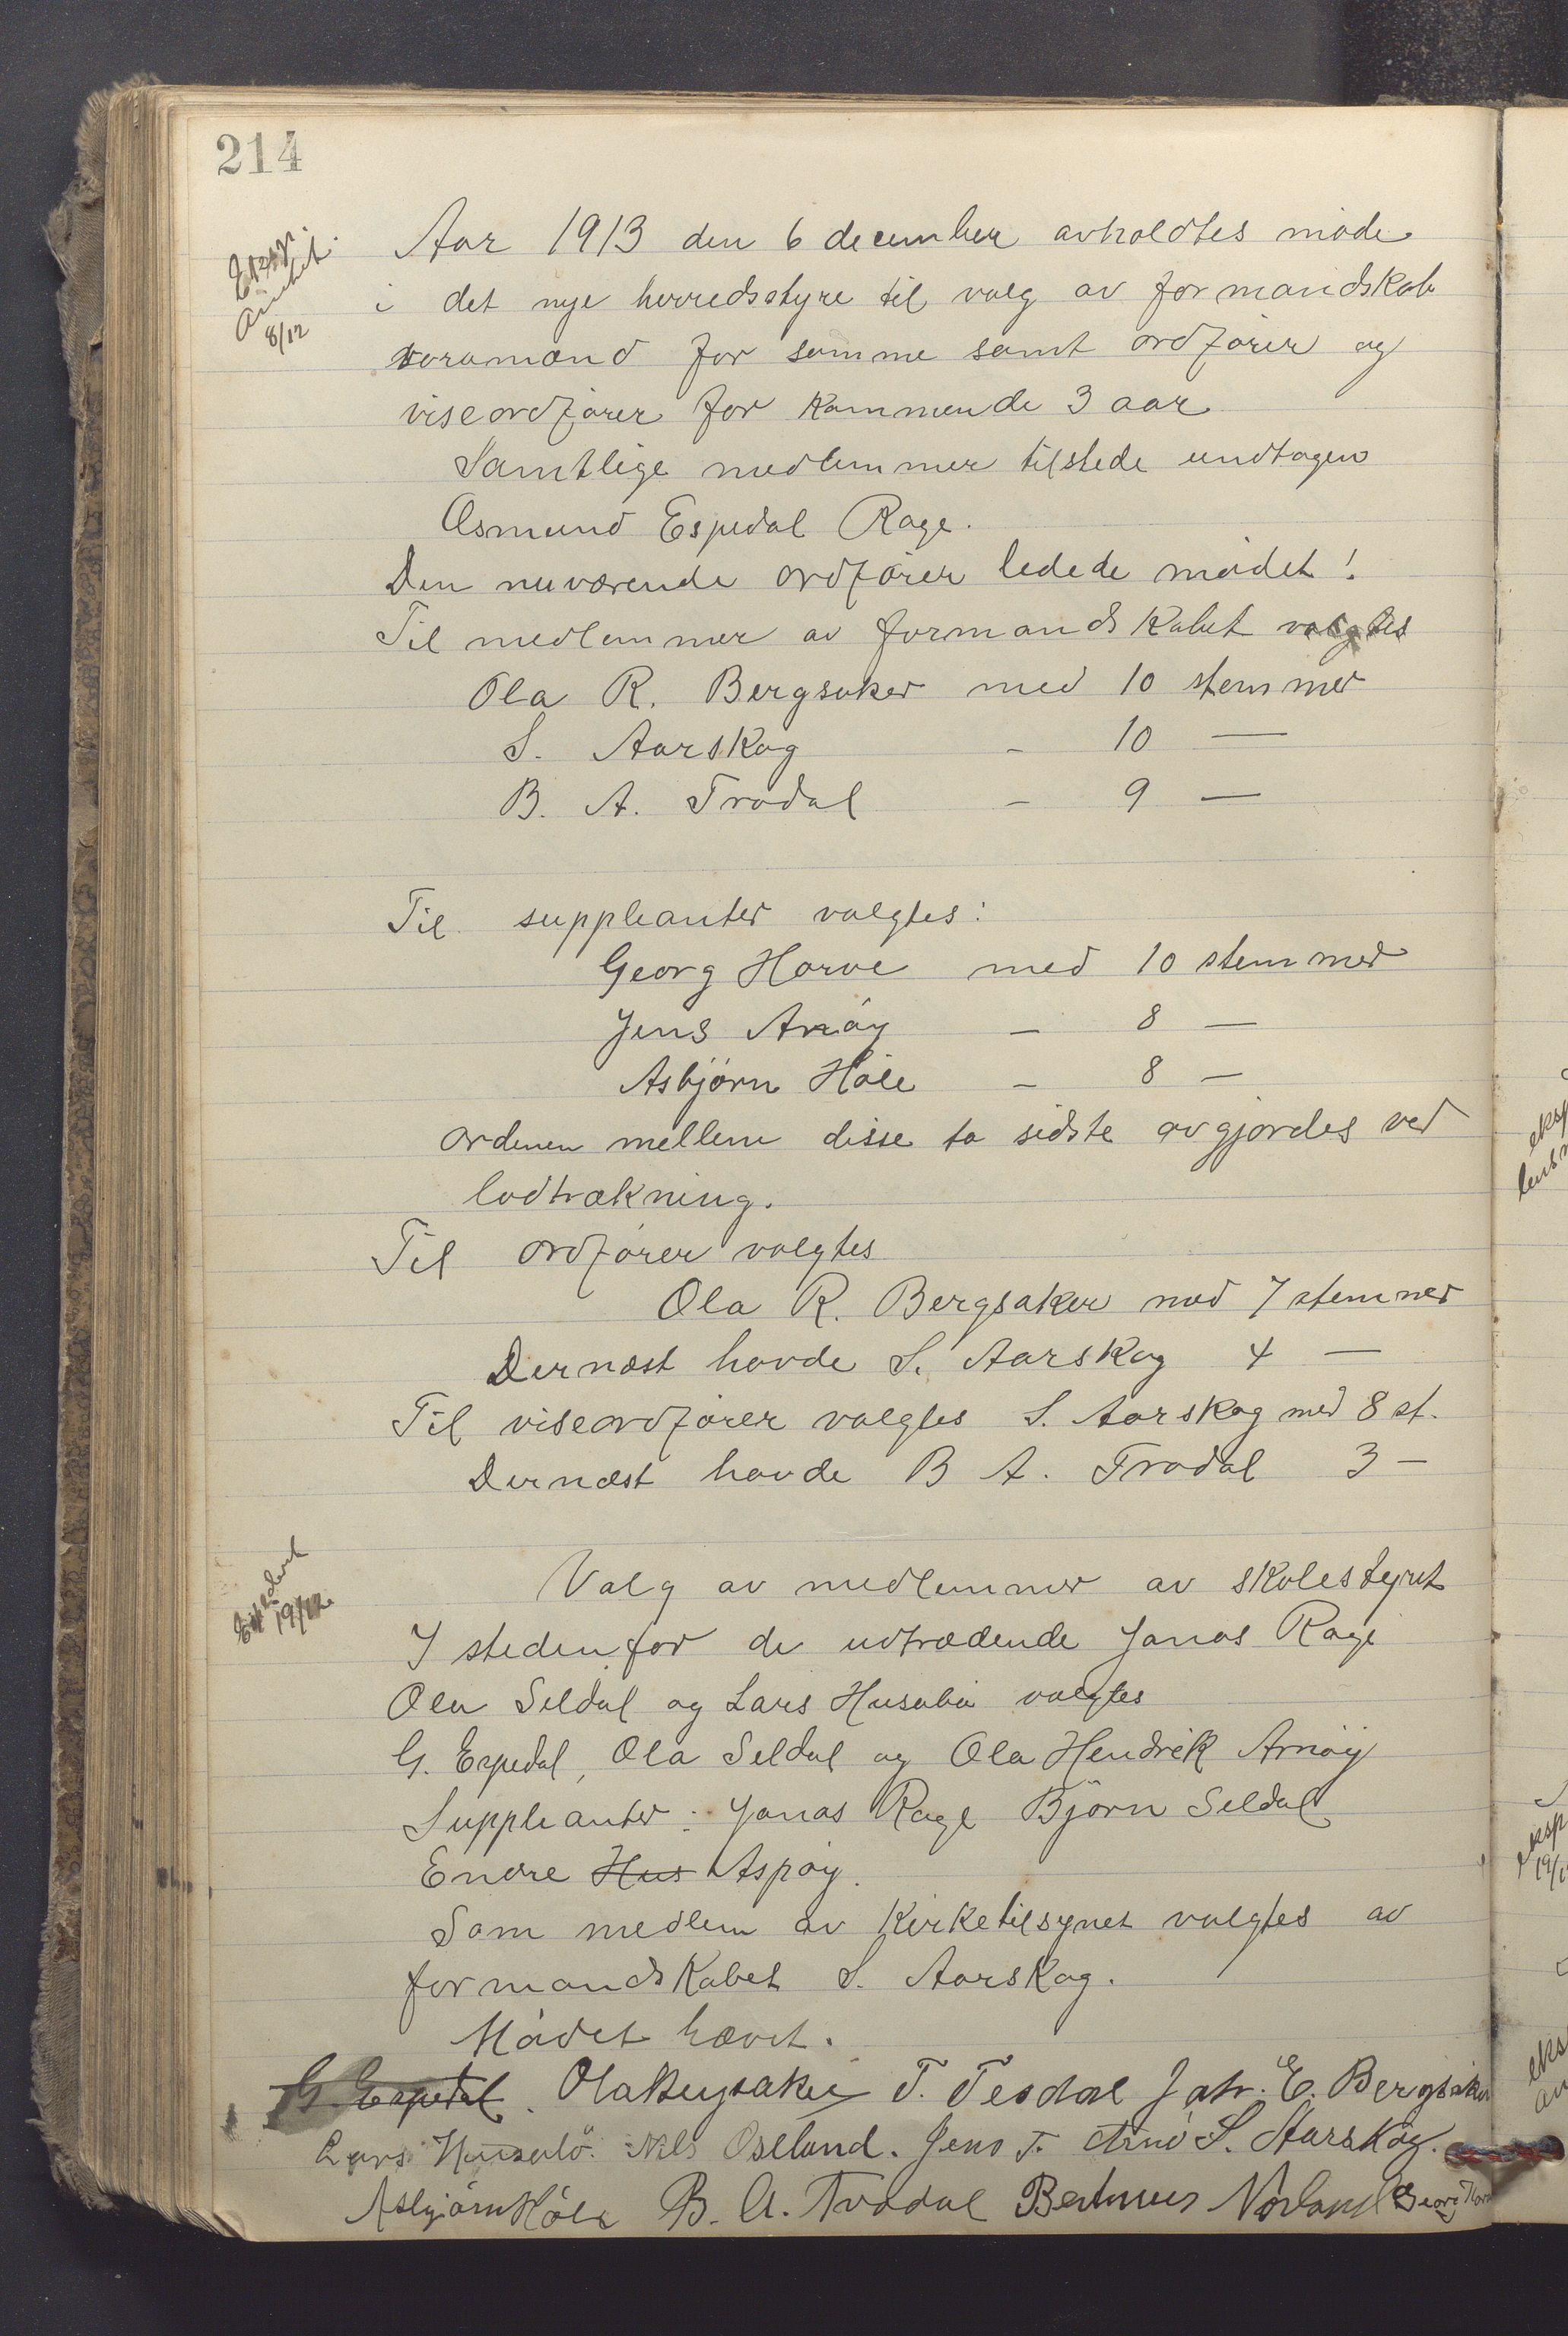 214
Eksp.
Amtet.
8/12
Aar 1913 den 6 december avholdtes möde
i det nye herredsstyre til valg av formandskab
varamænd for samme samt ordförer og
viseordförer for kommende 3 aar
Samtlige medlemmer tilstede undtagen
Osmund Espedal Rage.
Den nuværende ordförer ledede mödet!
Til medlemmer av formandskabet valgtes
Ola R. Bergsaker med 10 stemmer
S. Aarskog - 10 —
B. A. Trodal - 9 —
Til suppleanter valgtes:
Georg Harve med 10 stemmer
Jens Arnöy - 8 —
Asbjörn Höle - 8 —
ordenen mellem disse to sidste avgjordes ved
lodtrækning.
Til ordförer valgtes
Ola R. Bergsaker med 7 stemmer
Dernæst havde S. Aarskog 4 —
Til viseordförer valgtes S. Aarskog med 8 st.
Dernæst havde B A. Trodal 3 —
19/12
Valg av medlemmer av skolestyret
I stedenfor de udtrædende Jonas Rage
Ola Seldal og Lars Husabö valgtes
G. Espedal, Ola Seldal og Ola Hendrik Arnöy
Suppleanter: Jonas Rage Björn Seldal
Endre Hus Aspöy.
Som medlem av Kirketilsynet valgtes av
formandskabet S. Aarskog.
Mödet hævet.
G. Espedal. Ola Bergsaker T. Tesdal Joh. E. Bergsaker
Lars Husabö. Nils Osland. Jens T. Arnö S. Aarskog.
Asbjörn Höle B. A. Trodal Norland Georg